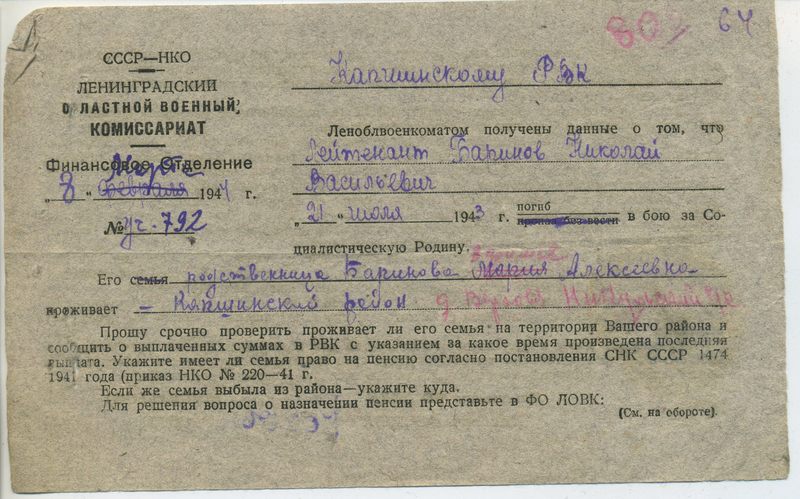 809
64
СССР—НКО
ЛЕНИНГРАДСКИЙ
О ЛАСТНОЙ ВОЕННЫЙ
КОМИССАРИАТ
Финансовое Отделение
Марта
„8“ февраля 1944 г.
№ уч. 792
Капшинскому РВК
Леноблвоенкоматом получены данные о том, что
Лейтенант Баринов Николай
Васильевич
„21“ июля 1943 г. погиб
пропал без вести в бою за Со-
циалистическую Родину.
Его семья родственница Баринова Мария Алексеевна
проживает – Капшинский район д
Прошу срочно проверить проживает ли его семья на территории Вашего района и
сообщить о выплаченных суммах в РВК с указанием за какое время произведена последняя
выплата. Укажите имеет ли семья право на пенсию согласно постановления СНК СССР 1474
1941 года (приказ НКО № 220—41 г.
Если же семья выбыла из района—укажите куда.
Для решения вопроса о назначении пенсии представьте в ФО ЛОВК:
(См. на обороте).